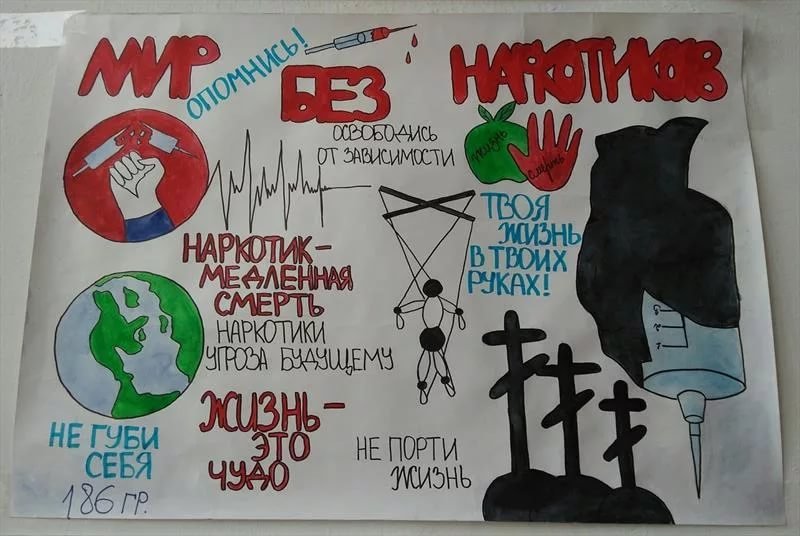 МИР БЕЗ НАРКОТИКОВ
ОПОМНИСЬ!
ОСВОБОДИСЬ
ОТ ЗАВИСИМОСТИ
ЖИЗНЬ
СМЕРТЬ
ТВОЯ
ЖИЗНЬ
В ТВОИХ
РУКАХ!
НАРКОТИК-
МЕДЛЕННАЯ
СМЕРТЬ
НАРКОТИКИ
УГРОЗА БУДУЩЕМУ
ЖИЗНЬ-
ЭТО
ЧУДО
НЕ ГУБИ
СЕБЯ
НЕ ПОРТИ
ЖИЗНЬ
186 ГР.